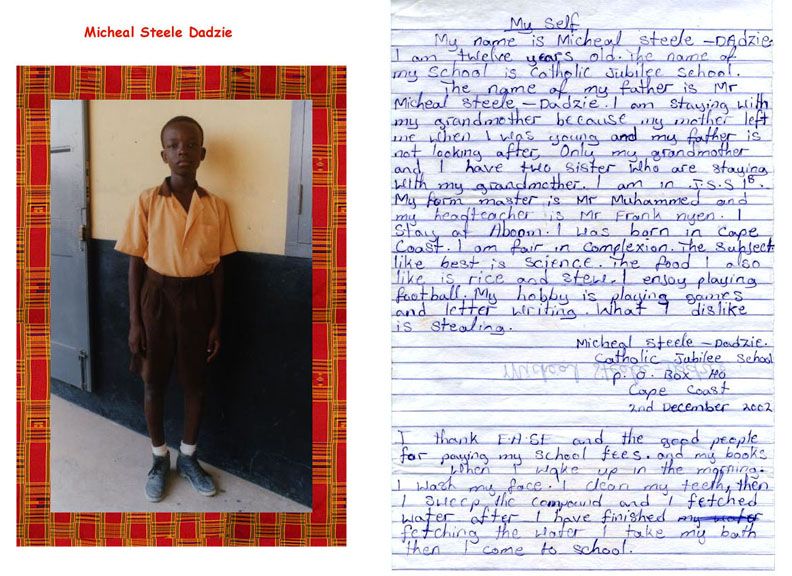 Micheal Steele Dadzie
My Self
My name is Micheal Steele - DAdzie.
I am twelve years old. The name of
my school is Catholic Jubilee School.
The name of my father is Mr
Micheal Steele - Dadzie. I am staying with
my grandmother because my mother left
me when I was young and my father is
not looking after, Only my grandmother
and I have two sister who are staying
with my grandmother. I am in J.S.S 1B.
My form master is Mr Muhammed and
my headteacher is Mr Frank nyen. I
stay at Aboom. I was born in Cape
Coast. I am fair in complexion. The subject
like best is science. The food I also
like is rice and stew. I enjoy playing
football. My hobby is playing games
and letter writing. What I dislike
is stealing.
Micheal Steele - Dadzie.
Catholic Jubilee School
P. O. Box
Cape Coast
2nd December 2002
I thank and the good people
for paying my school fees. and my books
When I wake up in the morning.
I wash my face. I clean my teeth, then
I sweep the compound and I fetched
water after I have finished
fetching the water I take my bath
then I come to school.